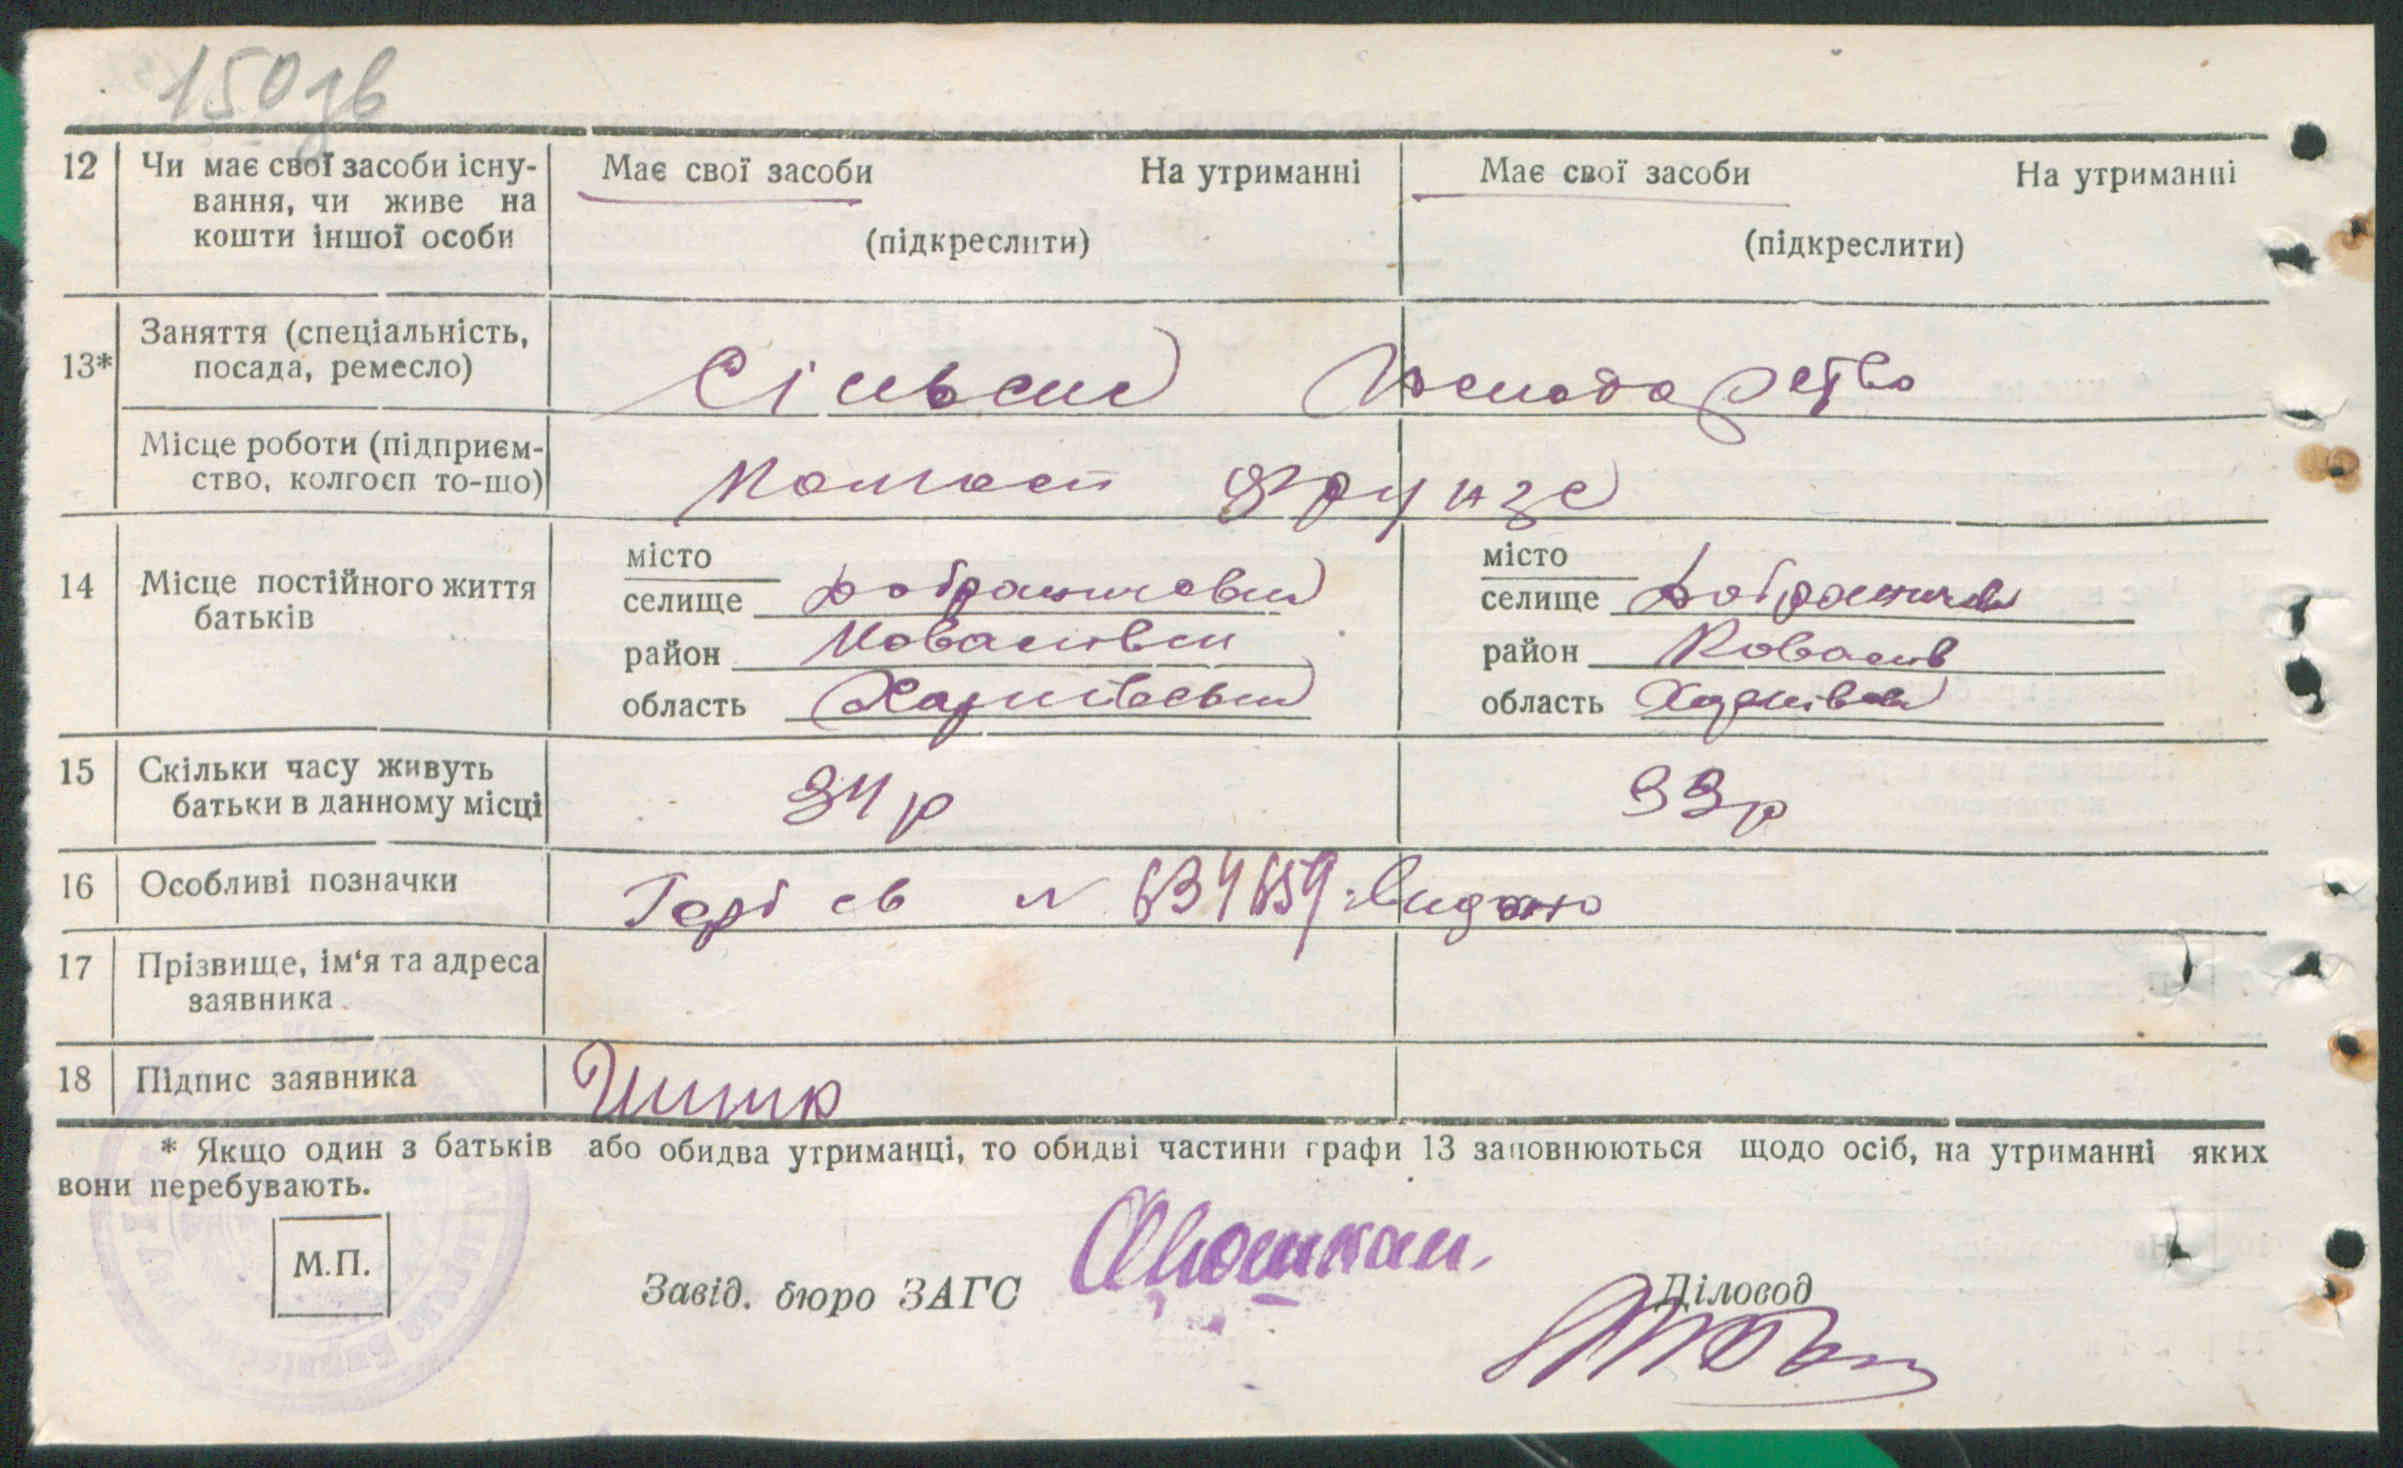 150 зв
12 Чи має свої засоби існу- Має свої засоби На утриманні Має свої засоби На утриманні
вання, чи живе на
кошти іншої особи (підкреслити) (підкреслити)
Заняття (спеціальність,
13* посада, ремесло) Сільське Господарство
Місце роботи (підприєм-
ство, колгосп то-що) Колгосп Фрунзе
місто місто
14 Місце постійного життя селище селище
батьків
район район
область Харківська область Харківська
15 Скільки часу живуть
батьки в данному місці 34 р 33 р
16 Особливі позначки Герб св № 634659 Видано
17 Прізвище, ім'я та адреса
заявника
18 Підпис заявника
* Якщо один з батьків або обидва утриманці, то обидві частини графи 13 заповнюються щодо осіб, на утриманні яких
вони перебувають.
М.П.
Завід. бюро ЗАГС Діловод